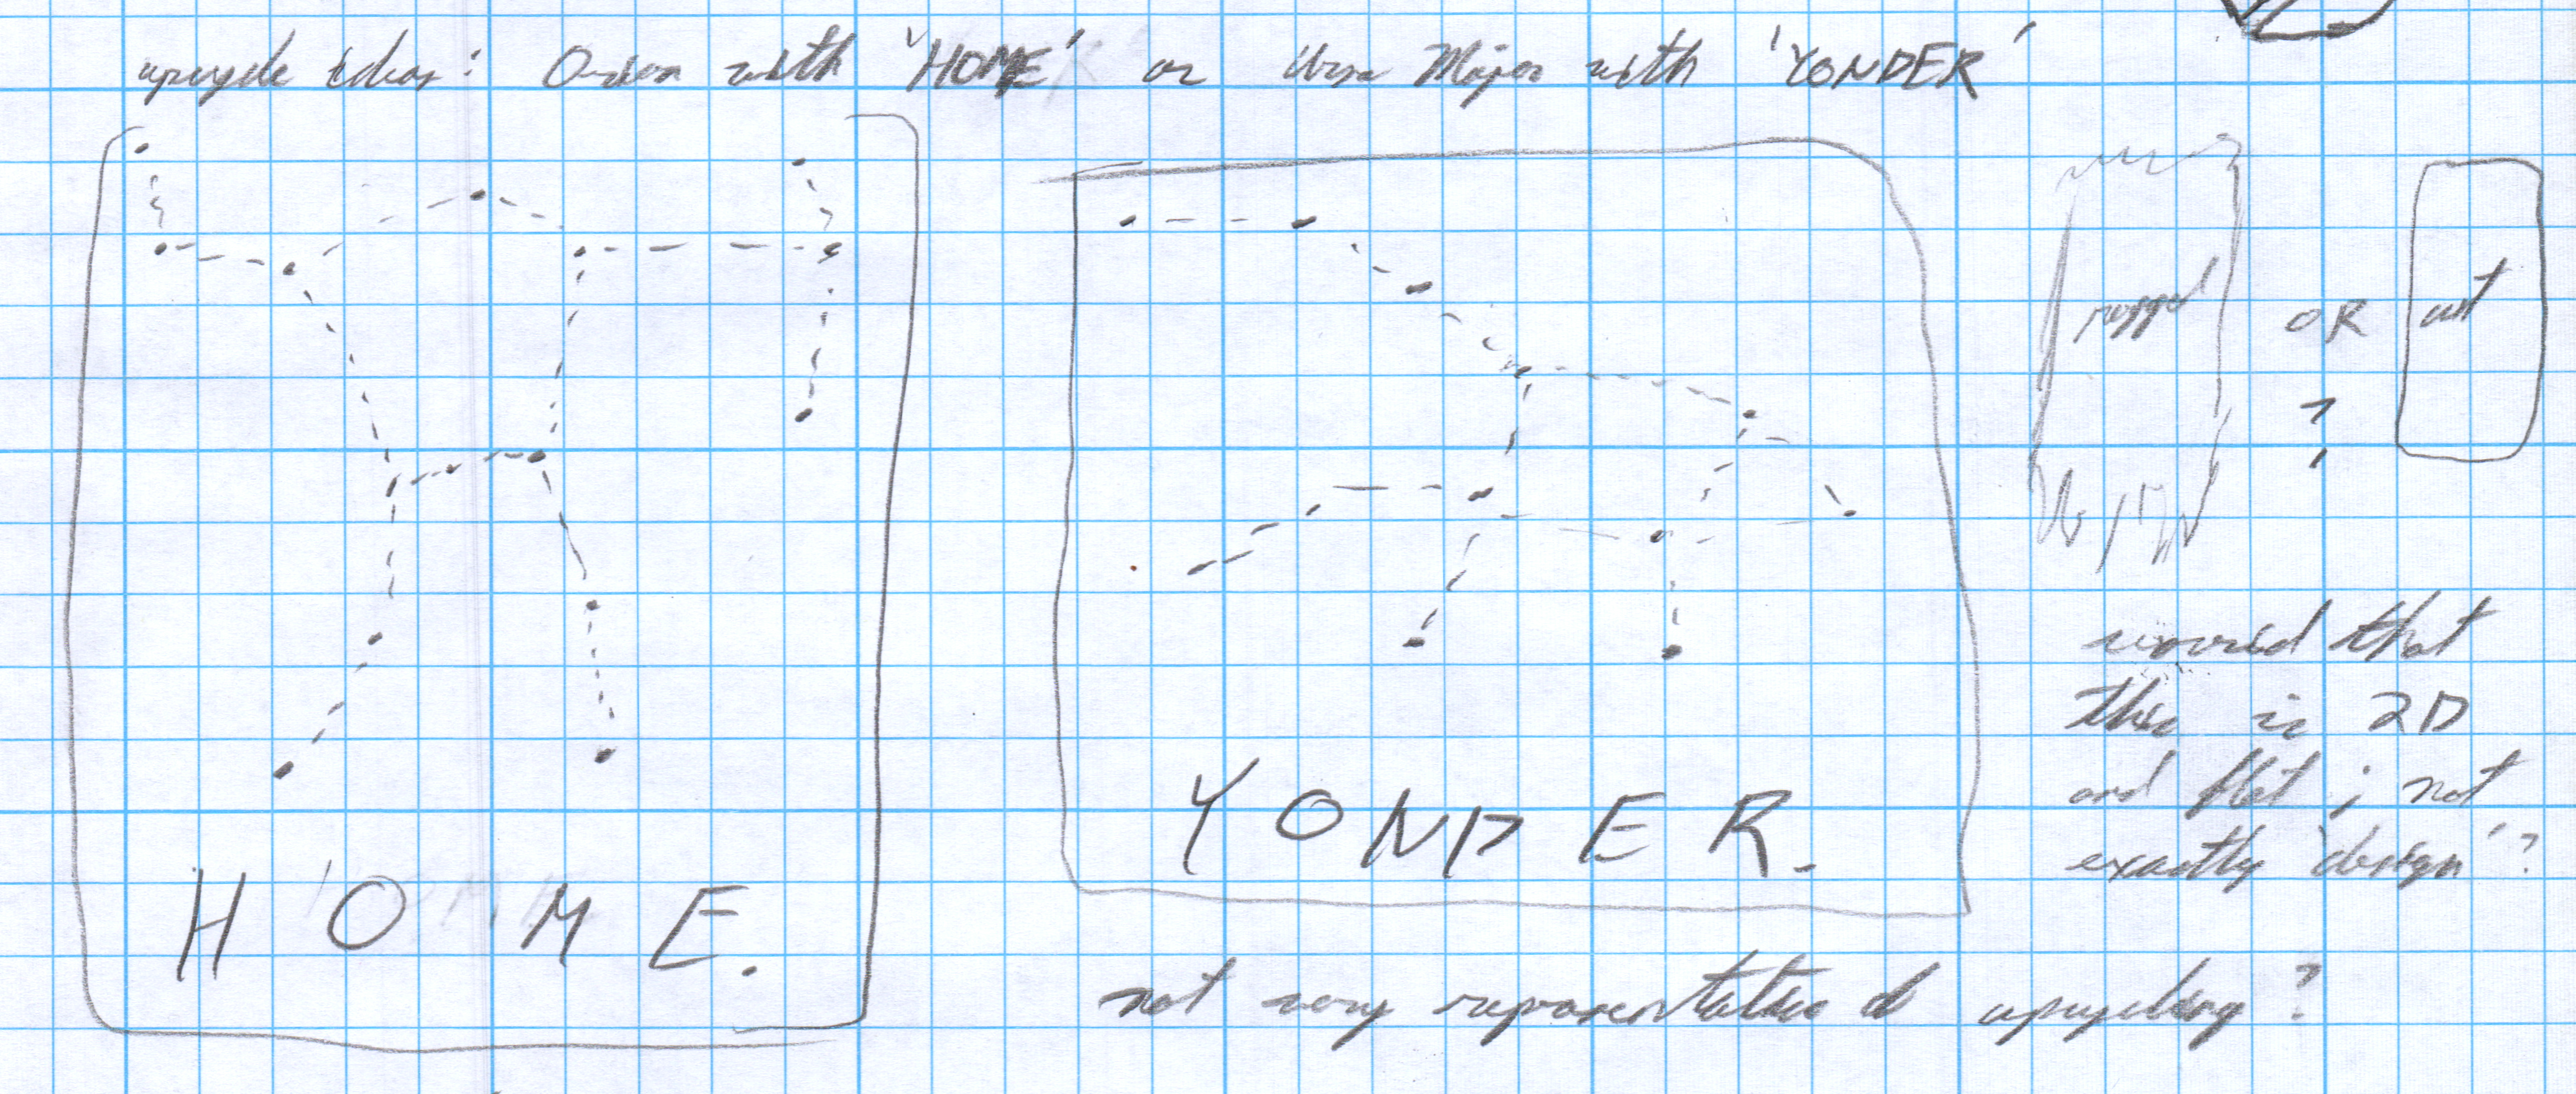 upcycle ideas: Orion with 'HOME' or Ursa Major with 'YONDER'
rugged OR cut
?
worried that
this is 2D
and flat; not
exactly 'design'?
YONDER.
HOME.
not very representative of upcycling?